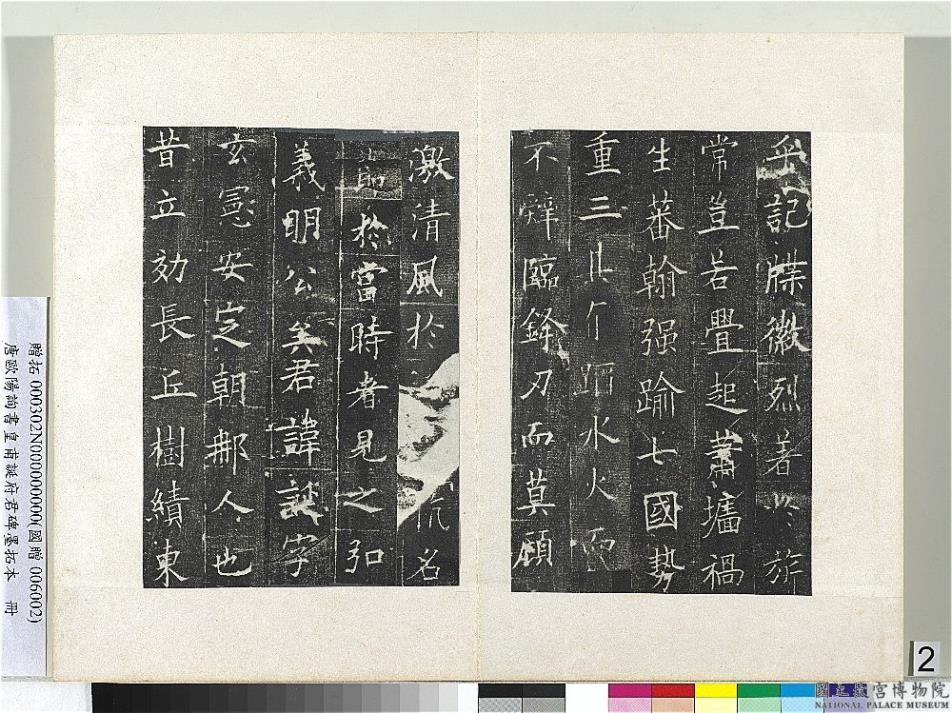 乎記牒徽烈著於旂
常豈若疊起蕭墻禍
生蕃翰强踰七國勢
重三
蹈水火而
不辤臨鋒刃而莫顧
激清風於
名
節於當時者見之弘
義明公矣君諱誕字
玄憲安定朝郍人也
昔立効長丘樹績東
贈拓 000302N000000000(國贈 006002)
唐歐陽詢書皇甫誕府君碑墨拓本 冊
2
國立故宮博物院
NATIONAL PALACE MUSEUM